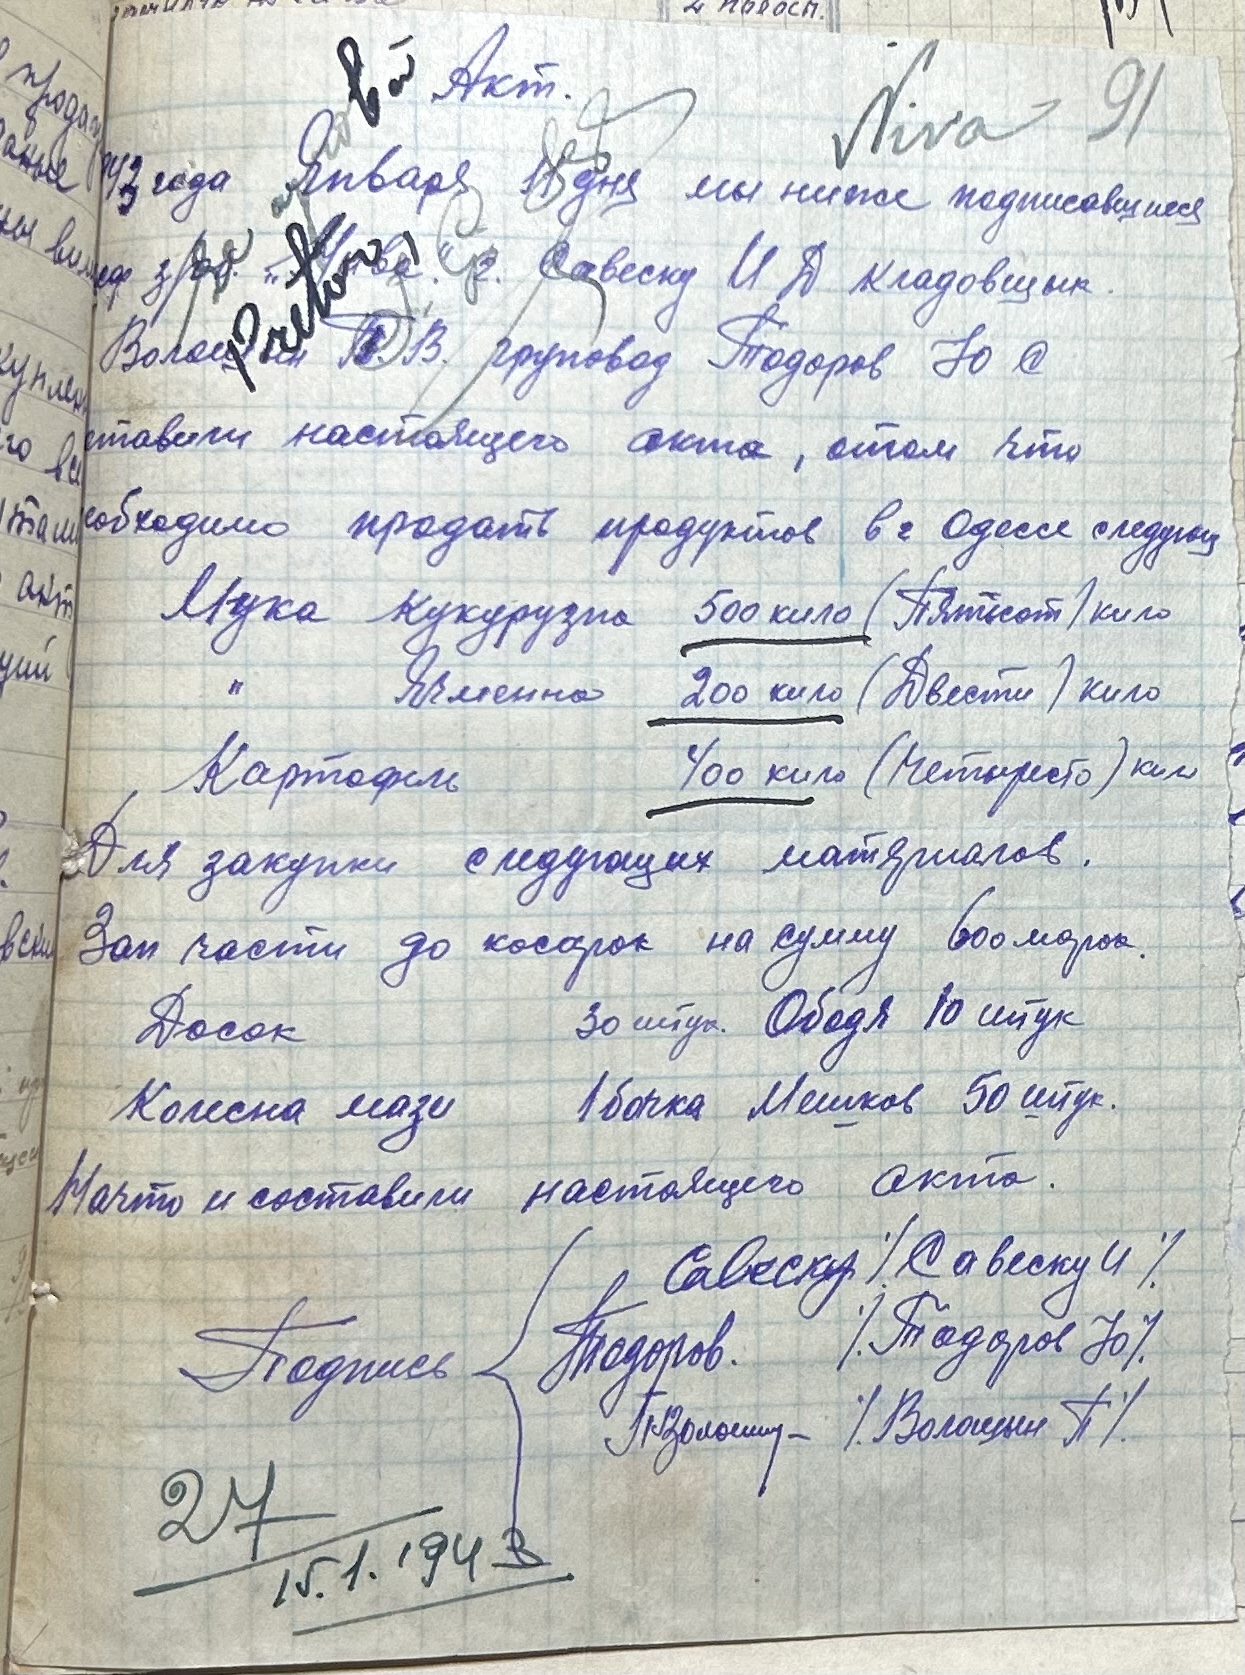 Акт.
Niva 91
1943 года Января 11 дня мы ниже подписавшиеся
"Нива" г. Савеску И Д кладовщык.
Волощын П.В. груповод Тодоров Ю С
ставили настоящего акта, отом что
еобходимо продать продуктов в г Одессе следующ
Мука кукурузна 500 кило (Пятьсот) кило
" Ячменна 200 кило (Двести) кило
Картофиль 400 кило (Четыресто) кило
Для закупки следующих матерялов.
Зап части до косарок на сумму 600 марок.
Досок 30 штук. Ободя 10 штук
Колесна мази 1 бочка Мешков 50 штук.
Начто и составили настоящего акта.
Савеску /Савеску И/.
Подпись Тодоров. /Тодоров Ю/.
/Волощын П/.
27
15.1.1943